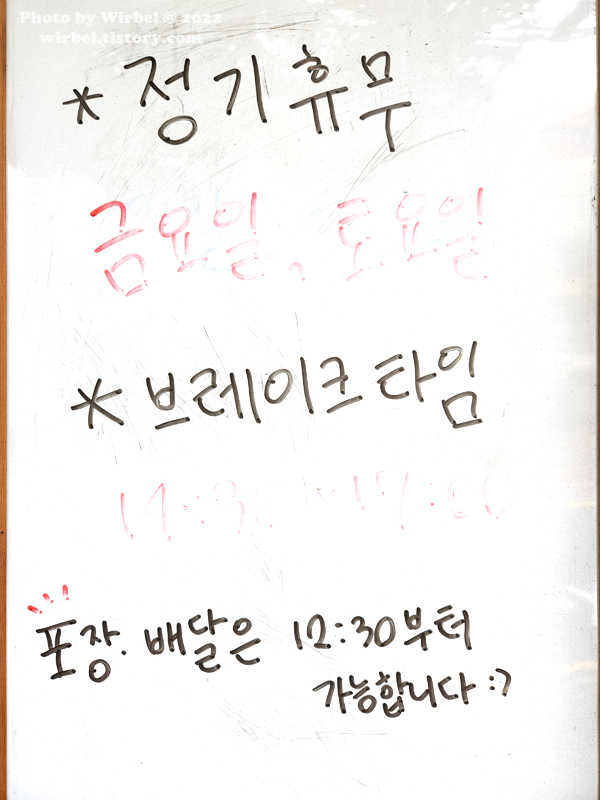 Photo by Wirbel @ 2022
wirbel.tistory.com
* 정기휴무
금요일, 토요일
* 브레이크타임
14:30 ~ 17:00
포장. 배달은 12:30부터
가능합니다 :7